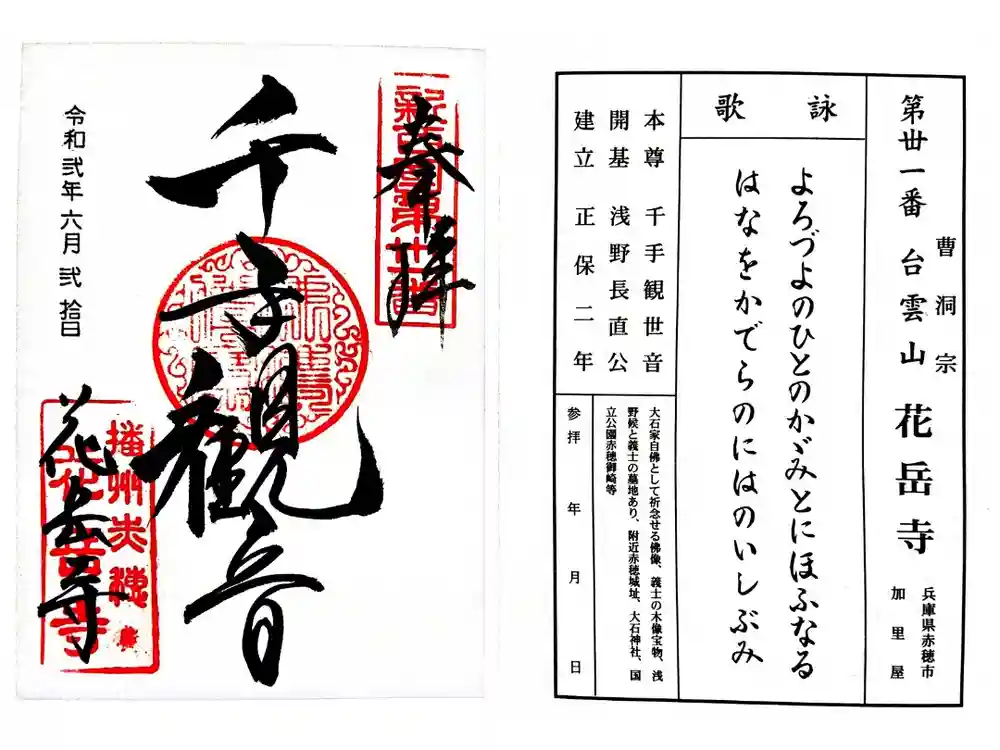 奉拝
新西国第卅一番
千手観音
播州赤穂
花岳寺
令和弐年六月弐拾日
第卅一番 台雲山 花岳寺
曹洞宗
兵庫県赤穂市
加里屋
詠歌
よろづよのひとのかゞみとにほふなる
はなをかでらのにはのいしぶみ
本尊 千手観世音
開基 浅野長直公
建立 正保二年
大石家自佛として祈念せる佛像、義士の木像宝物、浅
野候と義士の墓地あり、附近赤穂城址、大石神社、国
立公園赤穂御崎等
参拝 年 月 日